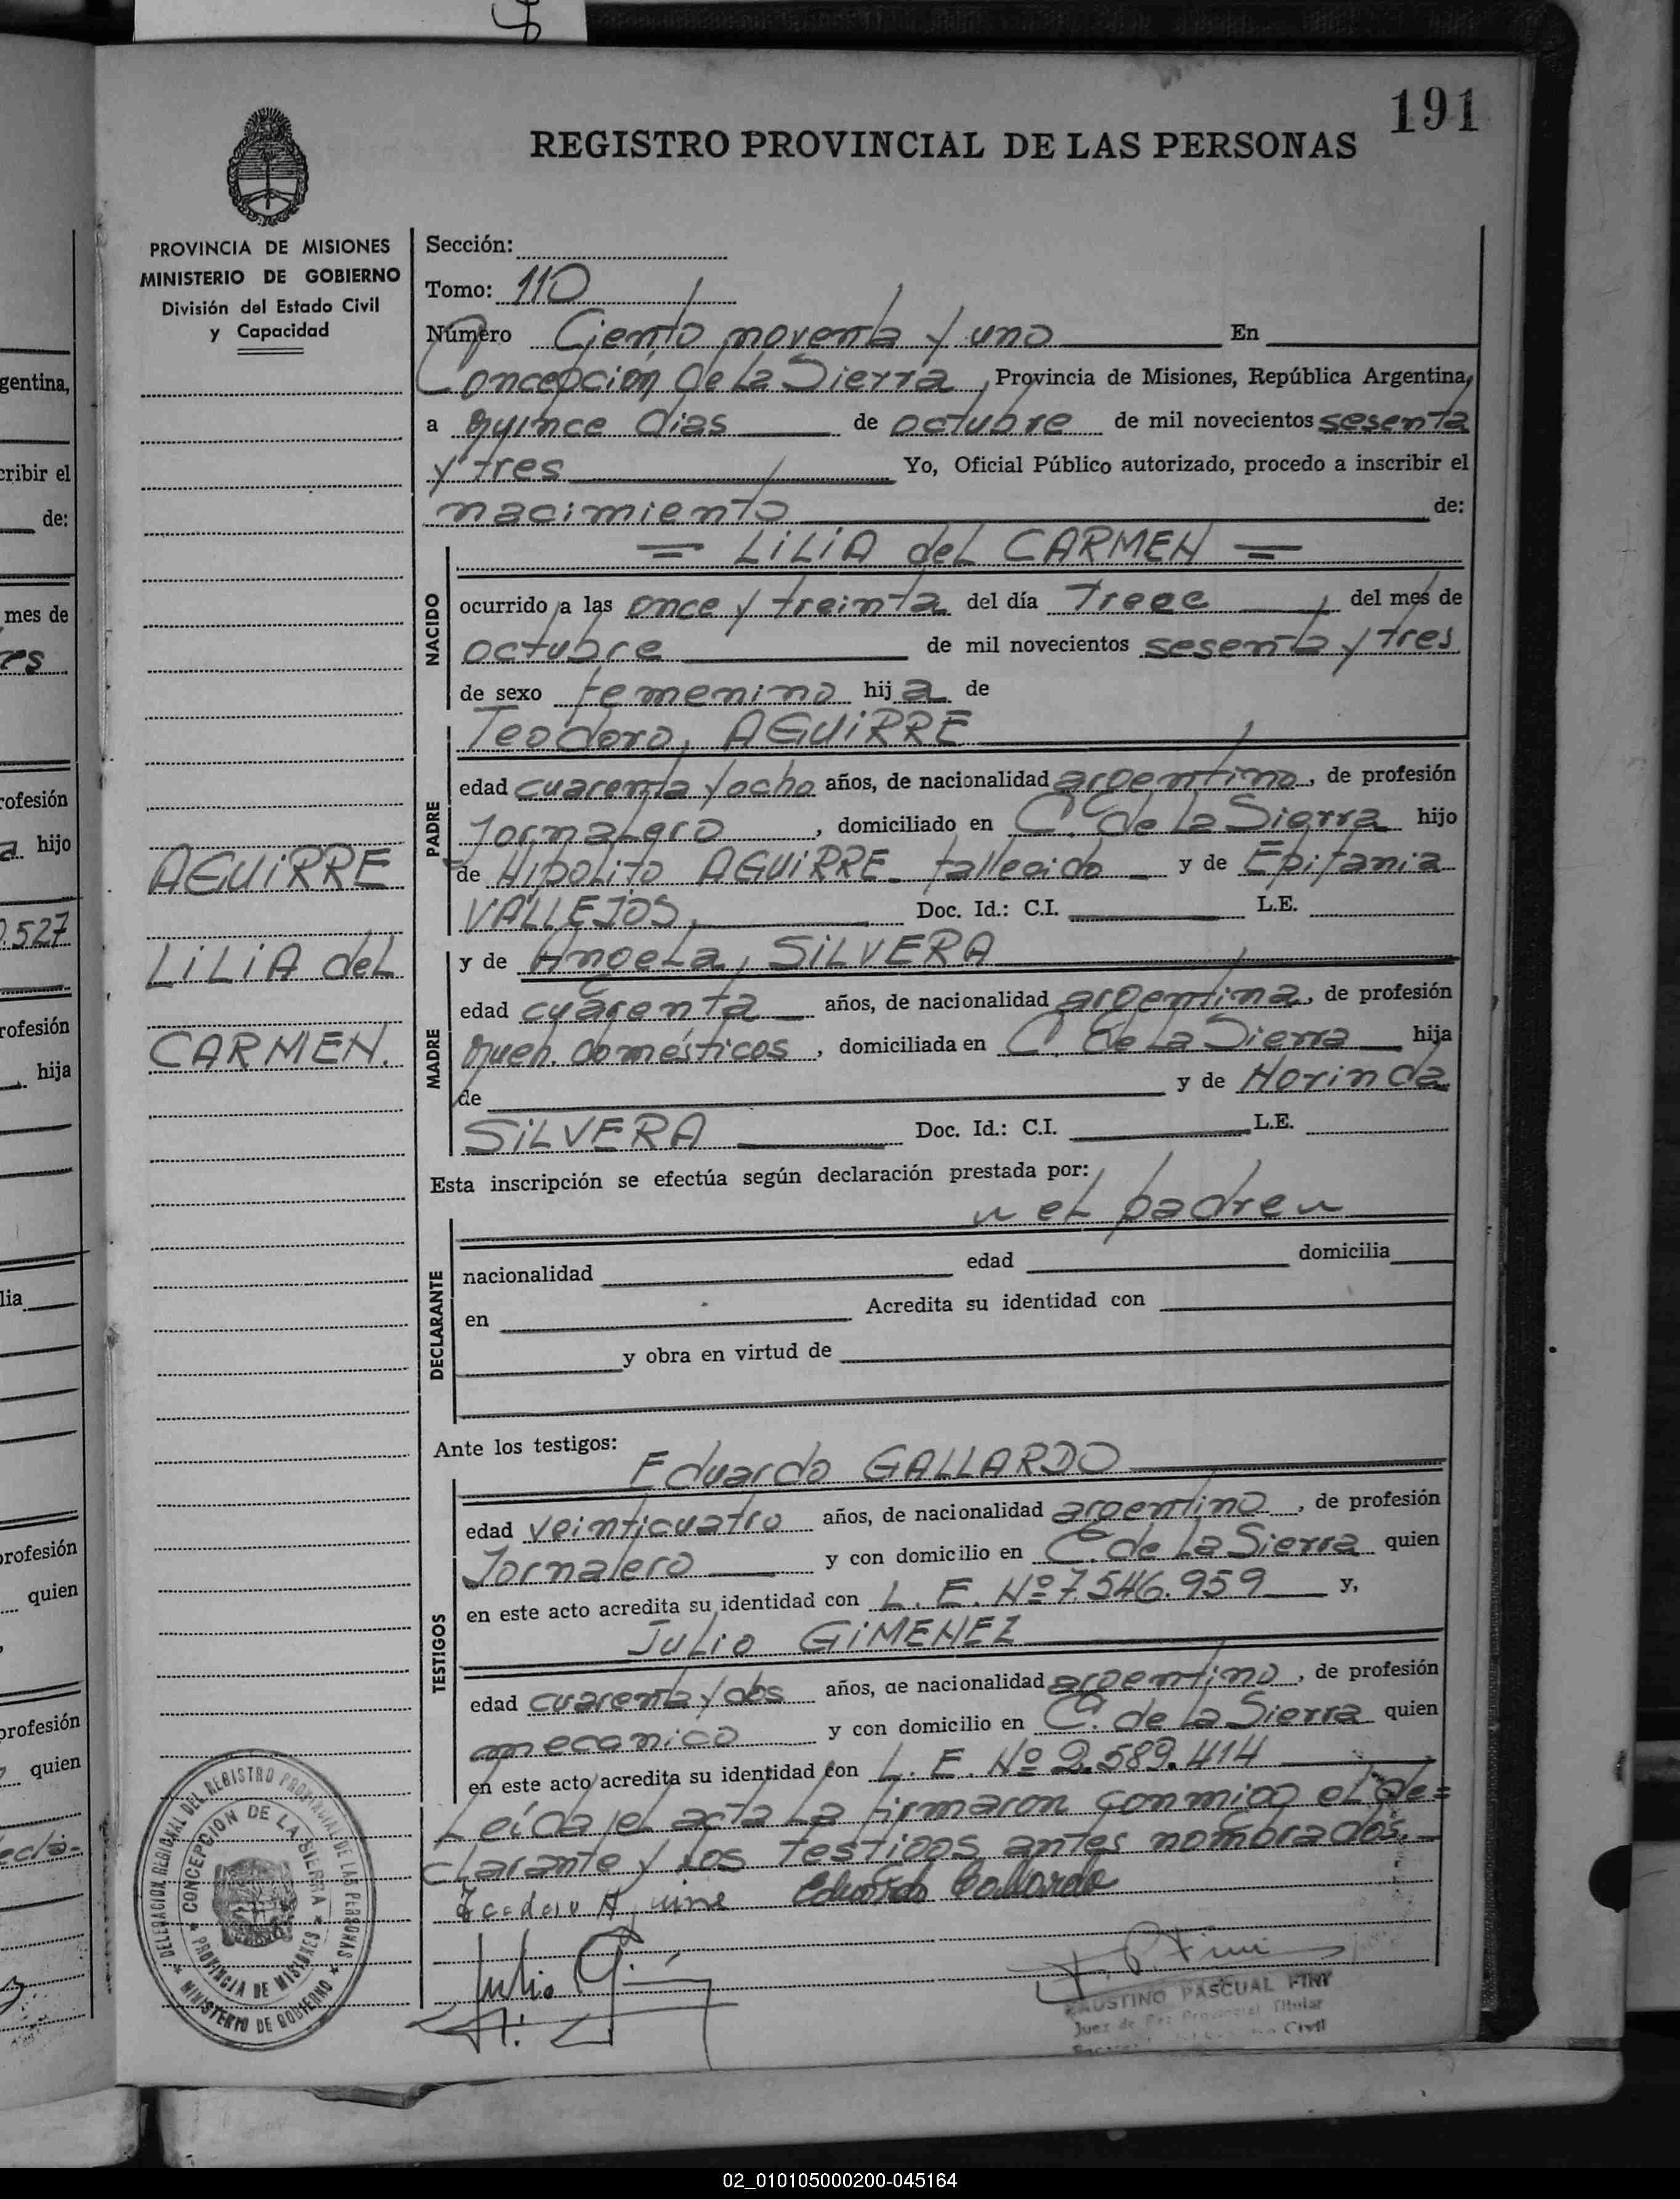 191
REGISTRO PROVINCIAL DE LAS PERSONAS
PROVINCIA DE MISIONES
MINISTERIO DE GOBIERNO
División del Estado Civil
y Capacidad
Sección:
Tomo: 110
Número Ciento noventa y uno En
Concepción de la Sierra, Provincia de Misiones, República Argentina,
a quince días de octubre de mil novecientos sesenta
y tres Yo, Oficial Público autorizado, procedo a inscribir el
nacimiento de:
= LILIA del CARMEN =
NACIDO
ocurrido a las once y treinta del día Trece del mes de
octubre de mil novecientos sesenta y tres
de sexo femenino hij a de
Teodoro, AGUIRRE
PADRE
edad cuarenta y ocho años, de nacionalidad argentino, de profesión
Jornalero, domiciliado en C. de la Sierra hijo
de Hipolito AGUIRRE - fallecido - y de Epifania
VALLEJOS, Doc. Id.: C.I. L.E.
MADRE
y de Angela, SILVERA
edad cuarenta años, de nacionalidad argentina, de profesión
queh. domésticos, domiciliada en C. de la Sierra hija
de y de Horinda
SILVERA Doc. Id.: C.I. L.E.
AGUIRRE
LILIA del
CARMEN.
Esta inscripción se efectúa según declaración prestada por:
el padre
DECLARANTE
nacionalidad edad domicilia
en Acredita su identidad con
y obra en virtud de
Ante los testigos:
Eduardo GALLARDO
TESTIGOS
edad veinticuatro años, de nacionalidad argentino, de profesión
Jornalero y con domicilio en C. de la Sierra quien
en este acto acredita su identidad con L. E. Nº 7.546.959 y,
Julio GIMENEZ
edad cuarenta y dos años, de nacionalidad argentino, de profesión
mecanico y con domicilio en C. de la Sierra quien
en este acto acredita su identidad con L. E. Nº 2.589.414
Leída el acta la firmaron conmigo el de=
clarante y los testigos antes nombrados.-
Teodoro Aguirre Eduardo Gallardo
Julio G.
F. P. Fini
FAUSTINO PASCUAL FINI
Juez de Paz Provincial Titular
Civil
DELEGACION REGIONAL DEL REGISTRO PROVINCIAL DE LAS PERSONAS
CONCEPCION DE LA SIERRA
PROVINCIA DE MISIONES
MINISTERIO DE GOBIERNO
gentina,
cribir el
de:
mes de
res
rofesión
a hijo
0.527
rofesión
hija
lia
profesión
quien
profesión
quien
02_010105000200-045164